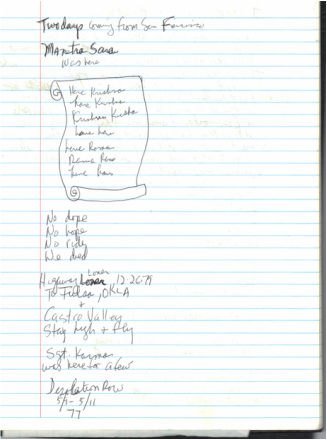 Two days coming from San Francisco
Mantra Sara
was here
Hare Krishna
hare Krishna
Krishna Krishna
hare hare
hare Rama
hare Rama
Rama Rama
hare hare
No dope
No hope
No ride
We died
Highway Loner, 12-26-79
To Tulsa, OKLA
+
Castro Valley
Stay high + fly
Sgt. Kayman
was here for a few
Desolation Row
5/1-5/11
77